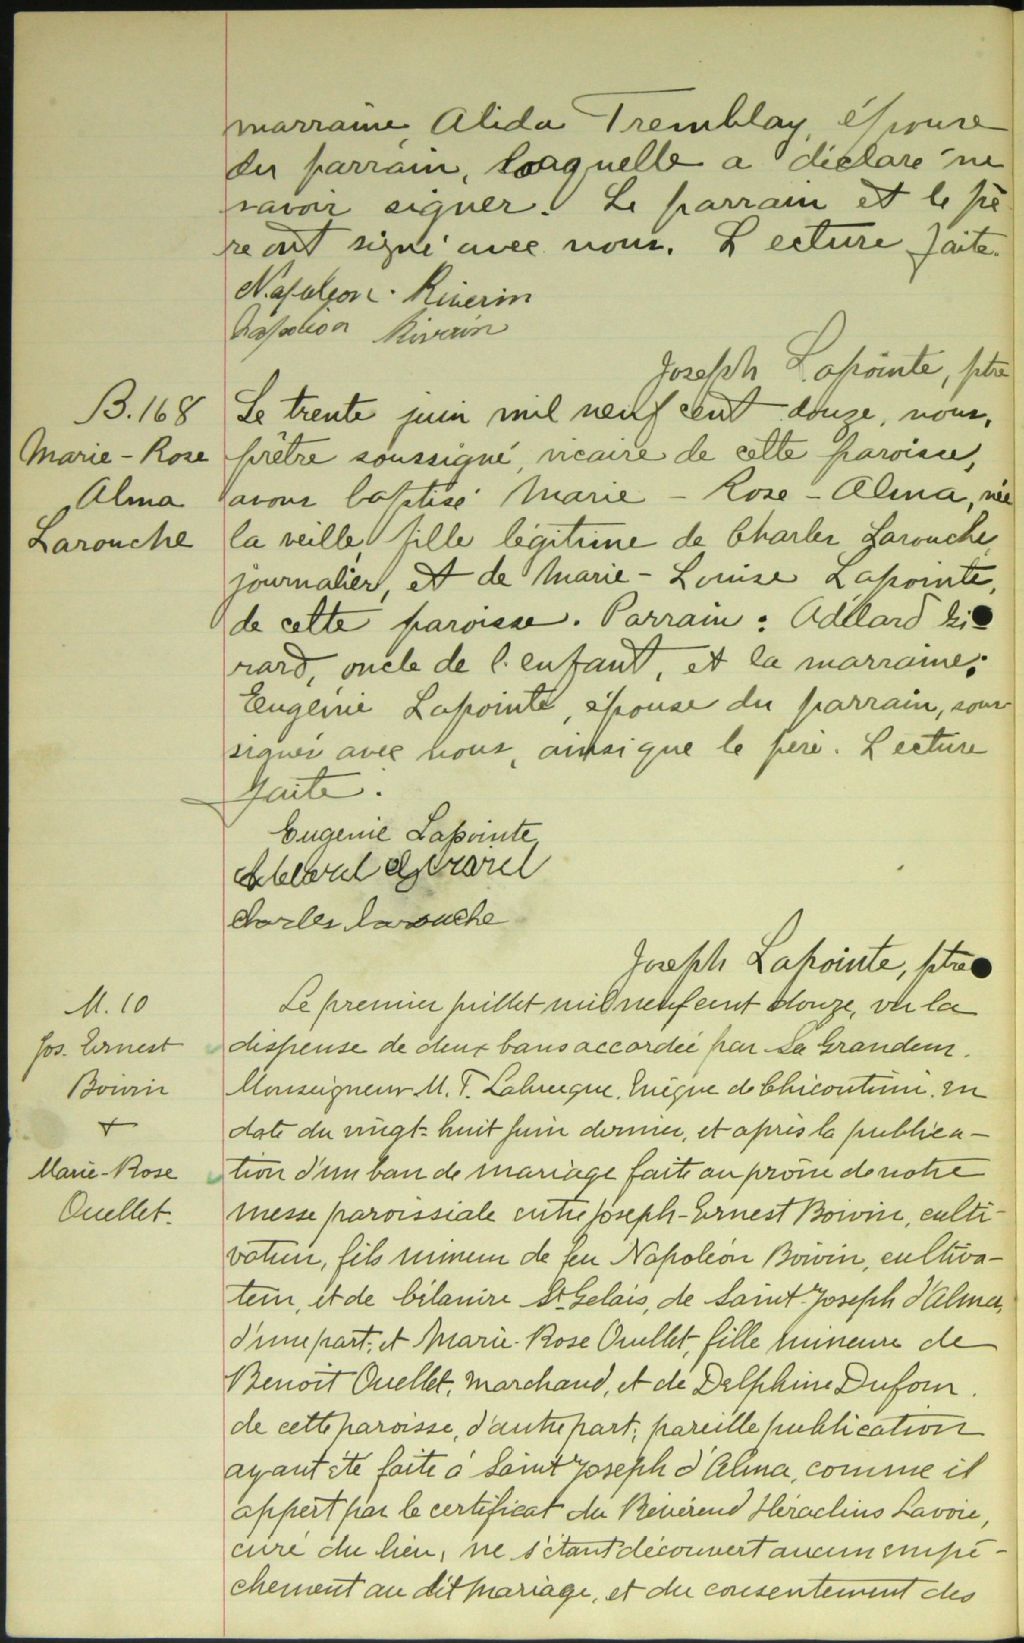 marraine Alida Tremblay, épouse
du parrain, laquelle a déclaré ne
savoir signer. Le parrain et le pè
re ont signé avec nous. Lecture faite.
Napoleon Riverin
Napoleon Riverin
Joseph Lapointe, ptre
B. 168
Marie-Rose
Alma
Larouche
Le trente juin mil neuf cent douze, nous,
prêtre soussigné, vicaire de cette paroisse,
avons baptisé Marie-Rose-Alma, née
la veille, fille légitime de Charles Larouche,
journalier, et de Marie-Louise Lapointe,
de cette paroisse. Parrain: Adélard Gi-
rard, oncle de l'enfant, et la marraine:
Eugénie Lapointe, épouse du parrain, sous-
signés avec nous, ainsi que le père. Lecture
faite.
Eugenie Lapointe
Adelard Girard
Charles Larouche
Joseph Lapointe, ptre
M. 10
Jos. Ernest
Boivin
+
Marie-Rose
Ouellet.
Le premier juillet mil neuf cent douze, vu la
dispense de deux bans accordée par Sa Grandeur
Monseigneur M. T. Labrecque, Evêque de Chicoutimi, en
date du vingt-huit juin dernier, et après la publica-
tion d'un ban de mariage faite au prône de notre
messe paroissiale entre Joseph-Ernest Boivin, culti-
vateur, fils mineur de feu Napoléon Boivin, cultiva-
teur, et de Célanire St-Gelais, de Saint-Joseph d'Alma,
d'une part; et Marie-Rose Ouellet, fille mineure de
Benoit Ouellet, marchand, et de Delphine Dufour,
de cette paroisse, d'autre part; pareille publication
ayant été faite à Saint Joseph d'Alma, comme il
appert par le certificat du Révérend Héraclius Lavoie,
curé du lieu, ne s'étant découvert aucun empê-
chement au dit mariage, et du consentement des